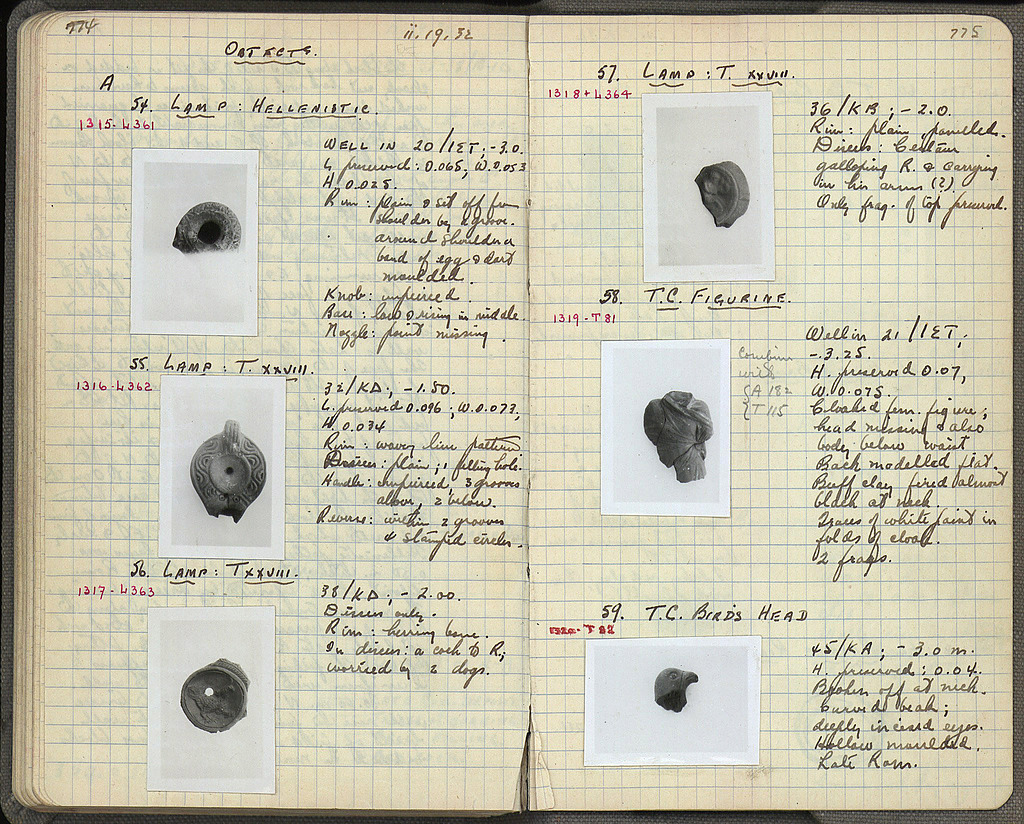 774
ii.19.32
OBJECTS.
A
54. LAMP: HELLENISTIC.
1315-L4361
WELL IN 20/IET; -3.0.
L. preserved: 0.065, W. 0.053
H. 0.025.
Rim: plain & set off from
shoulder by a groove.
around shoulder a
band of egg & dart
moulded.
Knob: unpierced.
Base: low & rising in middle.
Nozzle: point missing.
55. LAMP: T. XXVIII.
1316-L4362
32/KD; -1.50.
L. preserved 0.096; W. 0.073,
H. 0.034
Rim: wavy line pattern
Discus: plain; 1 filling hole.
Handle: unpierced, 3 grooves
above, 2 below.
Reverse: within 2 grooves
4 stamped circles.
56. LAMP: T XXVIII.
1317-L4363
38/KD; -2.00.
Discus only.
Rim: herring bone.
In discus: a cock to R,
worried by 2 dogs.
775
57. LAMP: T. XXVIII.
1318+L4364
36/KB; -2.0.
Rim: plain, panelled.
Discus: Centaur
galloping R. & carrying
in his arms (?)
Only frag. of top preserved.
58. T.C. FIGURINE.
1319-T81
Well in 21/IET;
-3.25.
H. preserved 0.07,
W. 0.075.
Cloaked fem. figure;
head missing & also
body below waist
Back modelled flat.
Buff clay fired almost
black at neck.
Traces of white paint in
folds of cloak.
2 frags.
Combine
with
{A 182
{T 115
59. T.C. BIRD'S HEAD
1320-T82
45/KA; -3.0 m.
H. preserved: 0.04.
Broken off at neck.
Curved beak;
deeply incised eyes.
Hollow moulded.
Late Rom.